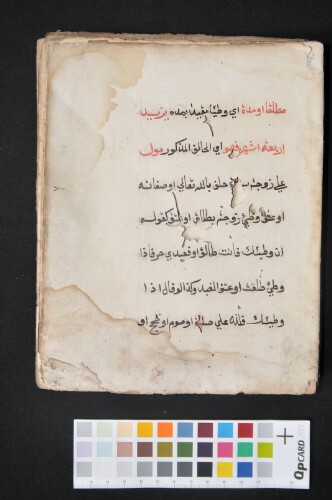 مطلقا او مدة اي وطيا مقيدا بمده يزيد
اربعة اشهر فهو اي الحالق المذكور مول
علي زوجته حلق بالله تعالي او صفاته
او علق وطي زوجته بطلاق او عتق كقوله
ان وطيتك فانت طالق او فعبدي حر فاذا
وطي طلقت او عتق العبد وكذا لو قال اذا
وطيتك فلله علي صلاة او صوم او حج او
QPCARD